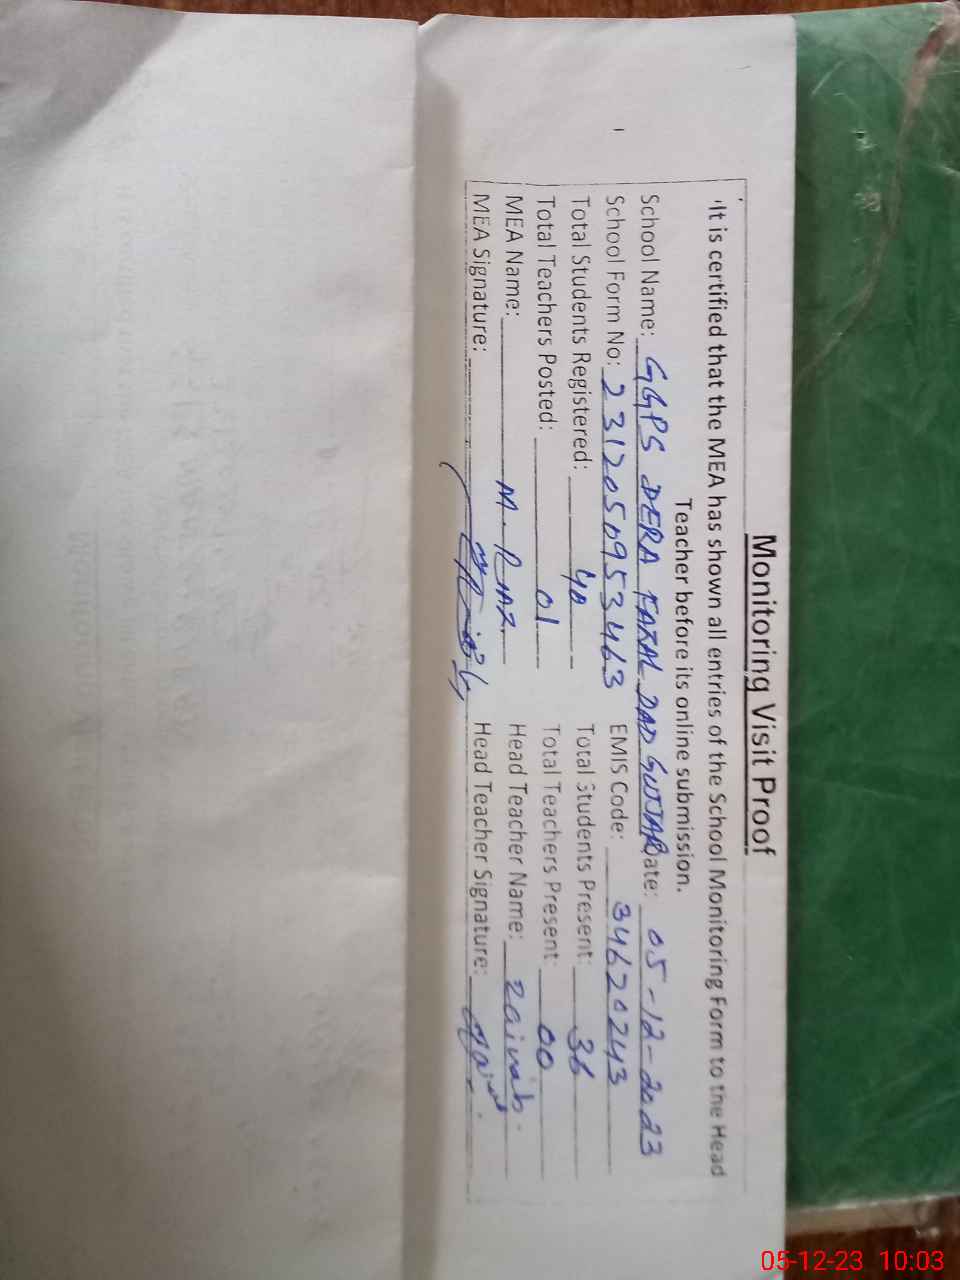 Monitoring Visit Proof
"It is certified that the MEA has shown all entries of the School Monitoring Form to the Head
Teacher before its online submission.
School Name: GGPS DERA FAZAL DAD GUJJAR Date: 05-12-2023
School Form No: 2312050953463 EMIS Code: 34620243
Total Students Registered: 40 Total Students Present: 36
Total Teachers Posted: 01 Total Teachers Present: 00
MEA Name: M. RIAZ Head Teacher Name: Zainab
MEA Signature: Head Teacher Signature:
05-12-23 10:03